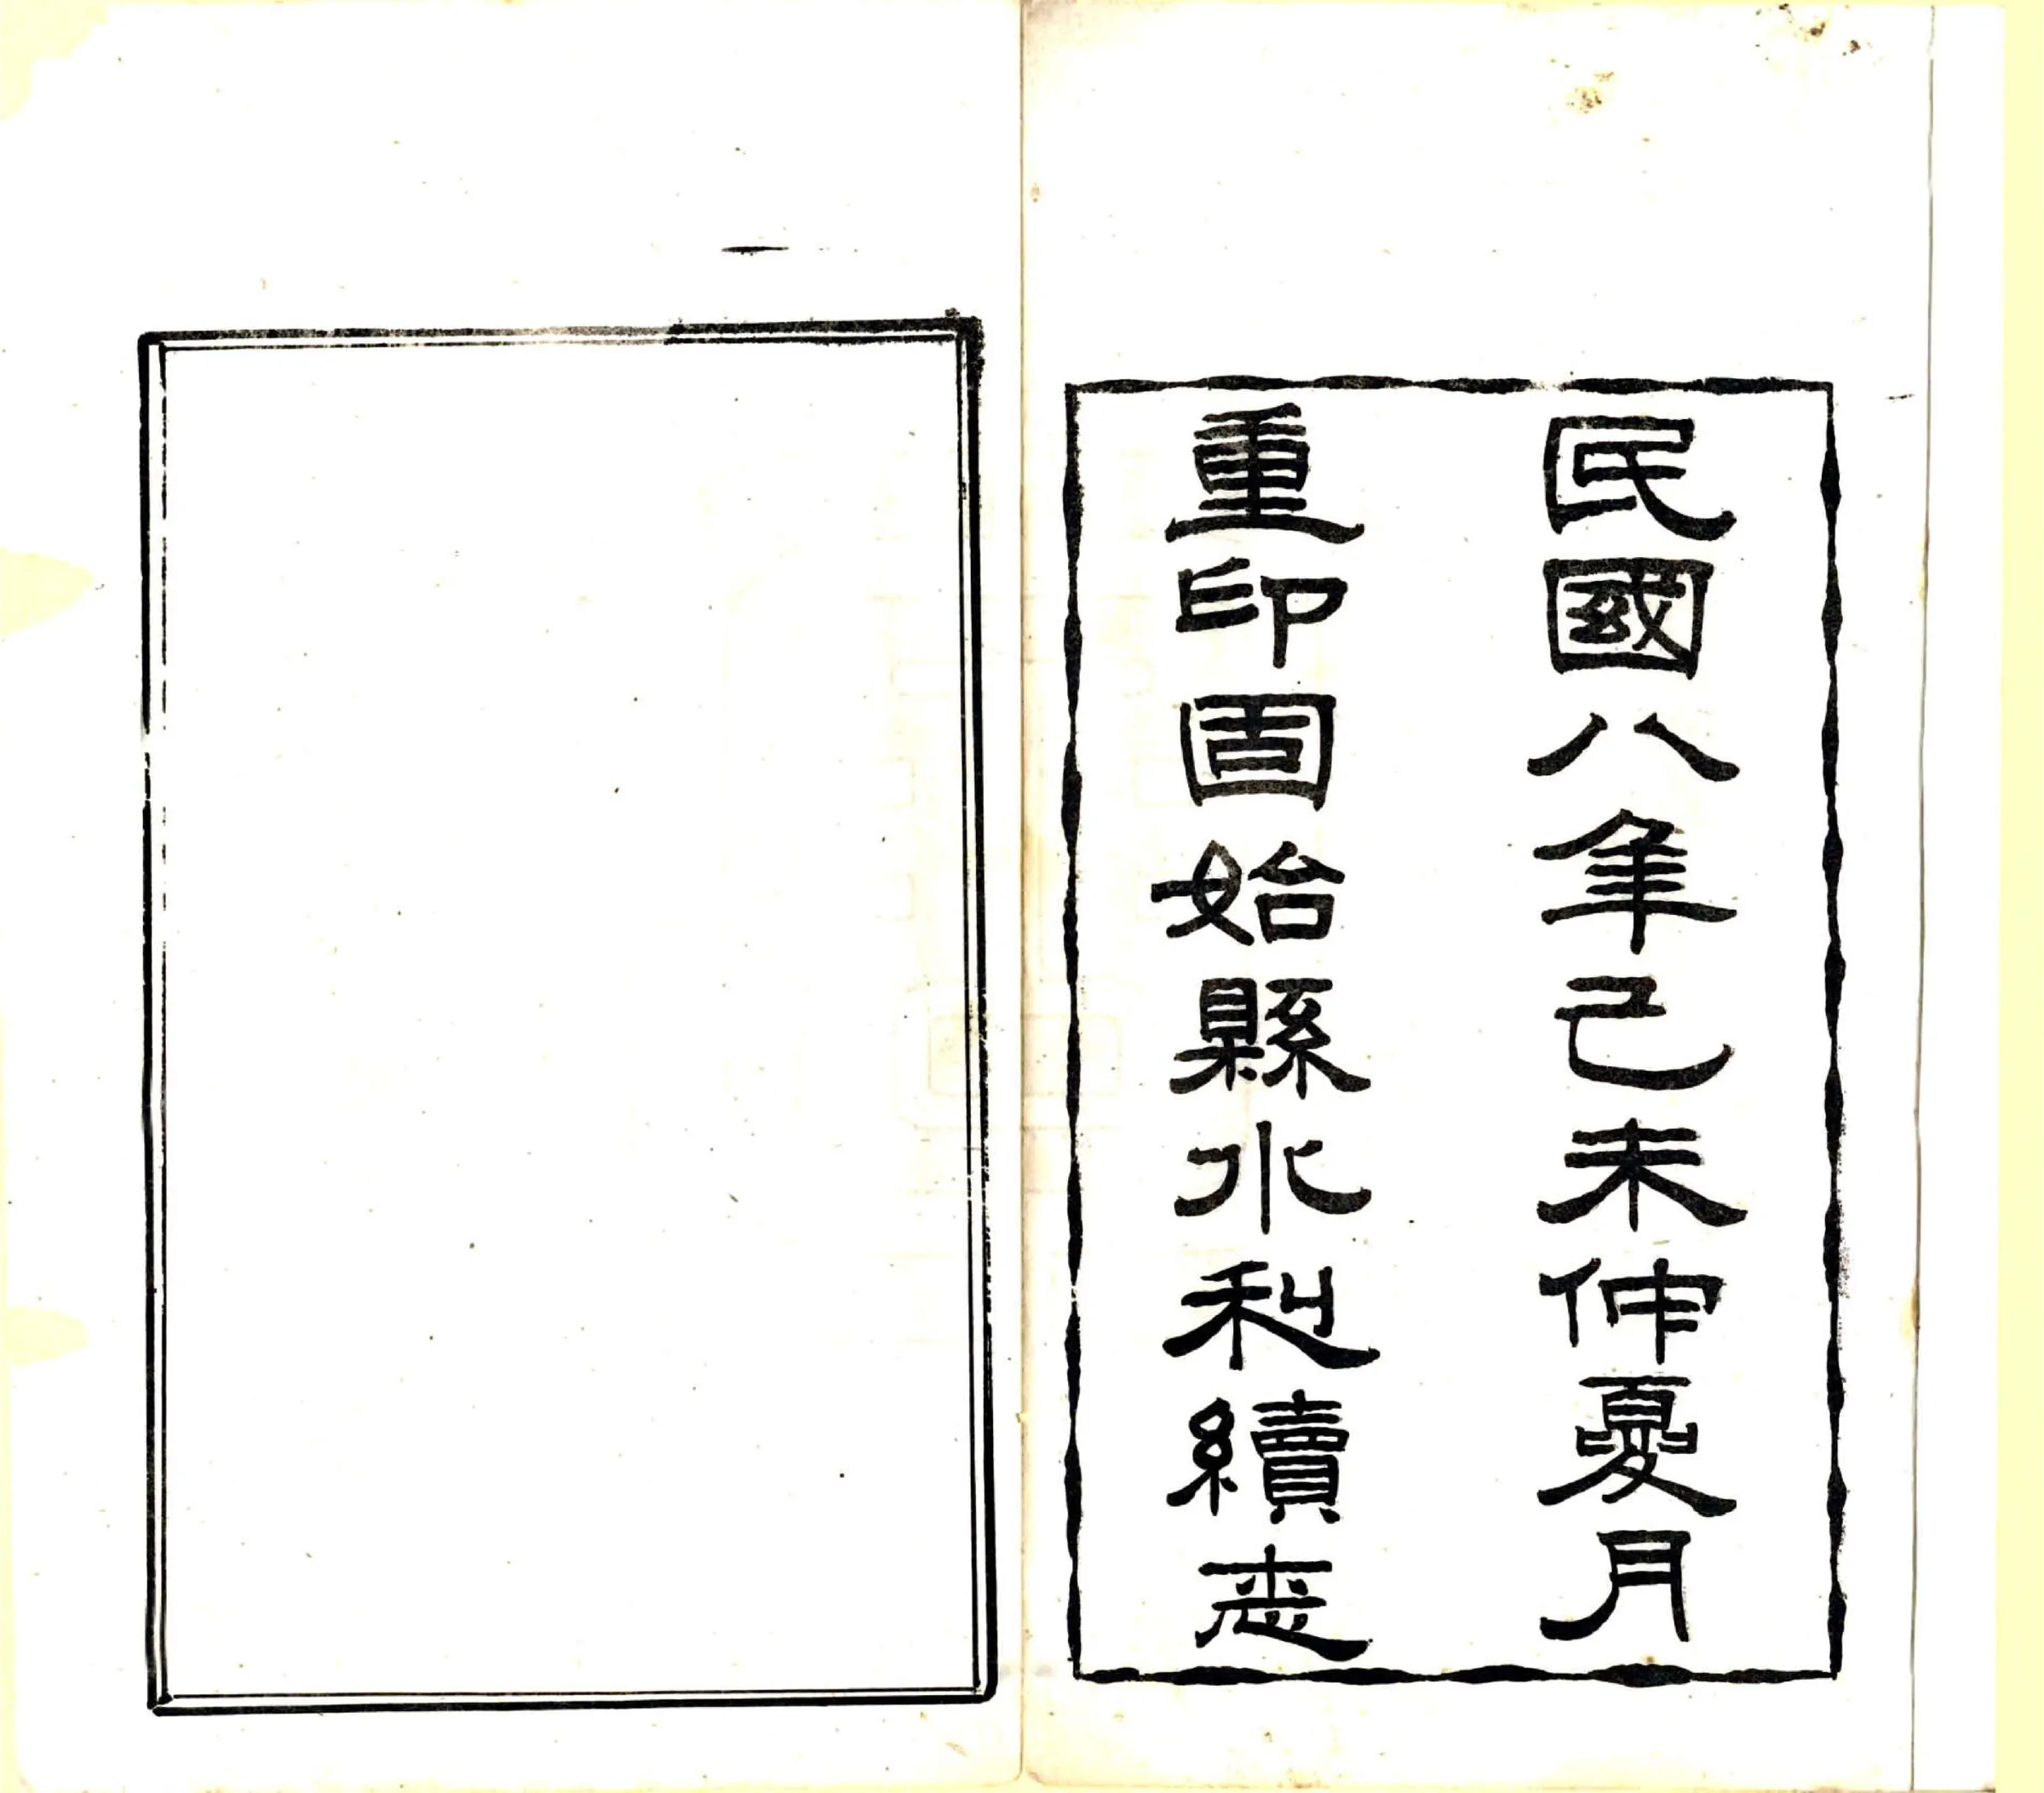 民國八年己未仲夏月
重印固始縣水利續志